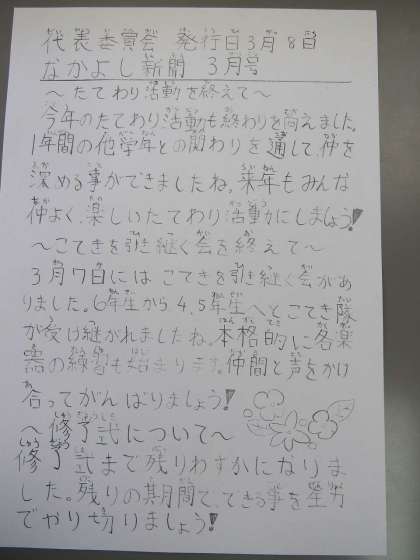 代表委員会 発行日3月8日
なかよし新聞 3月号
～たてわり活動を終えて～
今年のたてわり活動も終わりを向えました。
1年間の他学年との関わりを通して、仲を
深める事ができましたね。来年もみんな
仲よく、楽しいたてわり活動にしましょう!
～こてきを引き継ぐ会を終えて～
3月7日にはこてきを引き継ぐ会があ
りました。6年生から4.5年生へとこてき隊
が受け継がれましたね。本格的に各楽
器の練習も始まります。仲間と声をかけ
合ってがんばりましょう!
～修了式について～
修了式まで残りわずかになりま
した。残りの期間で、できる事を全力
でやり切りましょう!